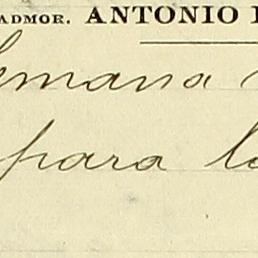 ADMOR. ANTONIO
semana
para